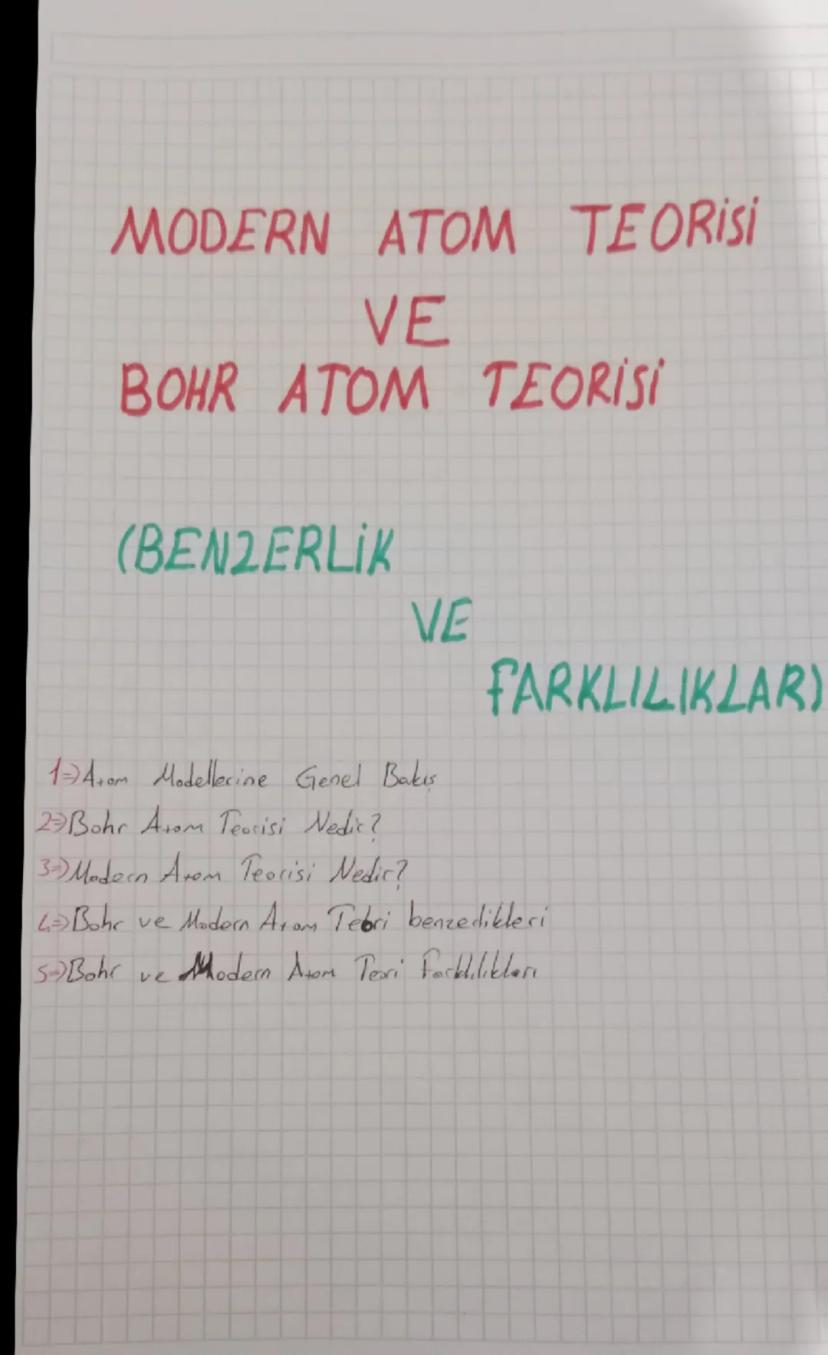 MODERN ATOM TEORİSİ
VE
BOHR ATOM TEORİSİ
(BENZERLİK
VE
FARKLILIKLAR)
1⇒Atom Modellerine Genel Bakış
2⇒Bohr Atom Teorisi Nedir?
3⇒Modern Atom Teorisi Nedir?
4⇒Bohr ve Modern Atom Teori benzedikleri
5⇒Bohr ve Modern Atom Teori Farklılıkları